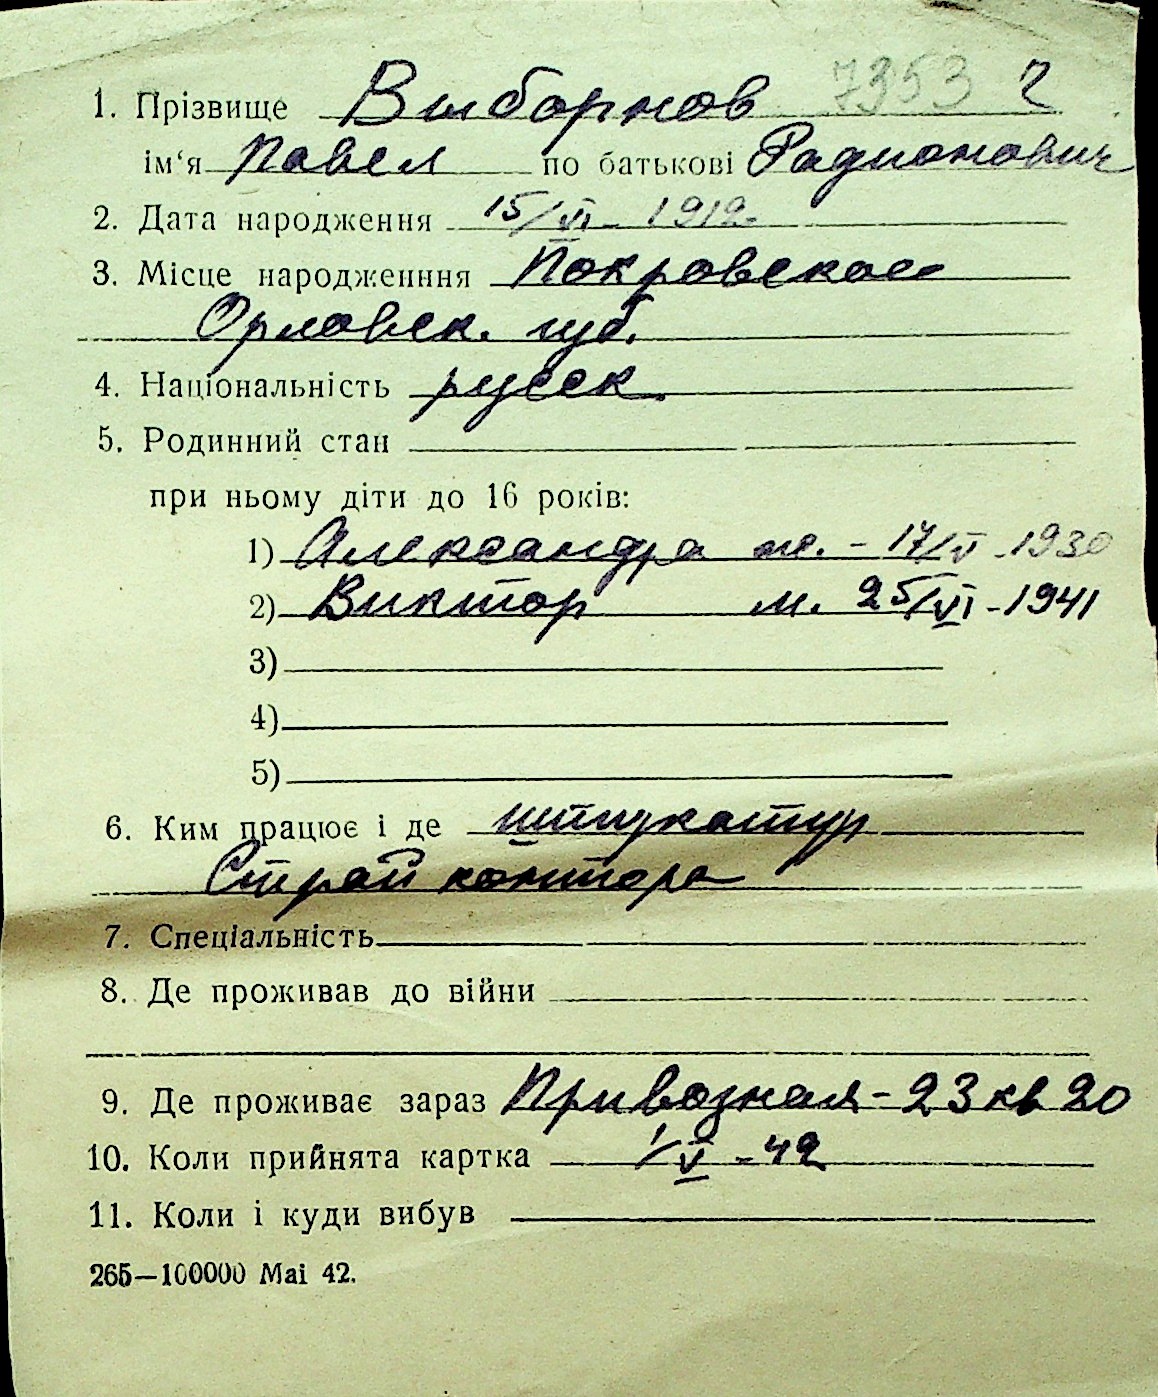 1. Прізвище Выборнов 7353 г
ім‘я Павел по батькові Радионович
2. Дата народження 15/VI - 1912.
3. Місце народженння Покровское
Орловск. губ.
4. Національність русск.
5. Родинний стан
при ньому діти до 16 років:
1) Александра ж. - 17/V - 1930
2) Виктор м. 25/VI - 1941
3)
4)
5)
6. Ким працює і де штукатур
Строй контора
7. Спеціальність
8. Де проживав до війни
9. Де проживає зараз Привозная - 23 кв 20
10. Коли прийнята картка 1/V - 42
11. Коли і куди вибув
265—100000 Маі 42.